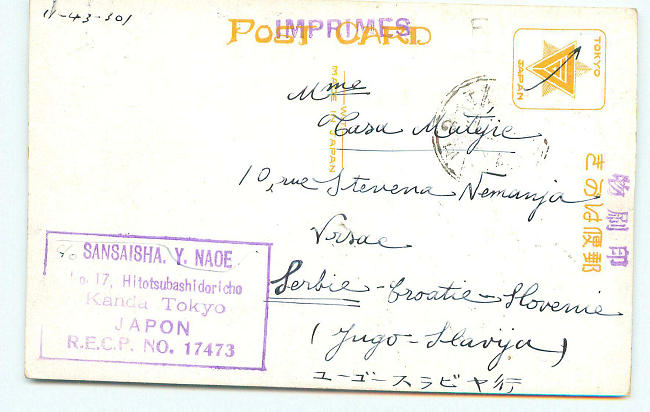 11-43-301
IMPRIMES
POST CARD
TOKYO
JAPAN
MADE IN JAPAN
Mme
Casa Matijie
10, rue Stevena Nemanja
Vrsac
Serbie-Croatie-Slovenie
(Jugo-Slavija)
ユーゴースラビヤ行
きのは便郵
物刷印
c/o SANSAISHA. Y. NAOE
No. 17, Hitotsubashidoricho
Kanda Tokyo
JAPON
R.E.C.P. NO. 17473